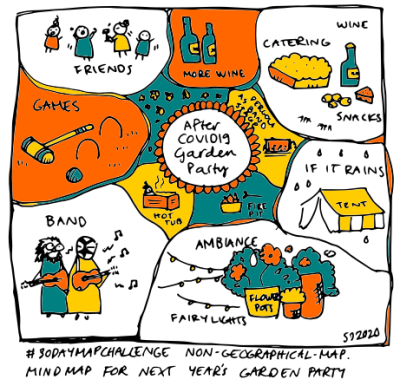 FRIENDS
MORE WINE
WINE
CATERING
SNACKS
GAMES
AFTER
COVID19
Garden
Party
IF IT RAINS
TENT
BAND
HOT
TUB
FIRE
PIT
AMBIANCE
FLOWER
POTS
FAIRY LIGHTS
SJ2020
#30DAYMAPCHALLENGE NON-GEOGRAPHICAL-MAP.
MINDMAP FOR NEXT YEAR'S GARDEN PARTY